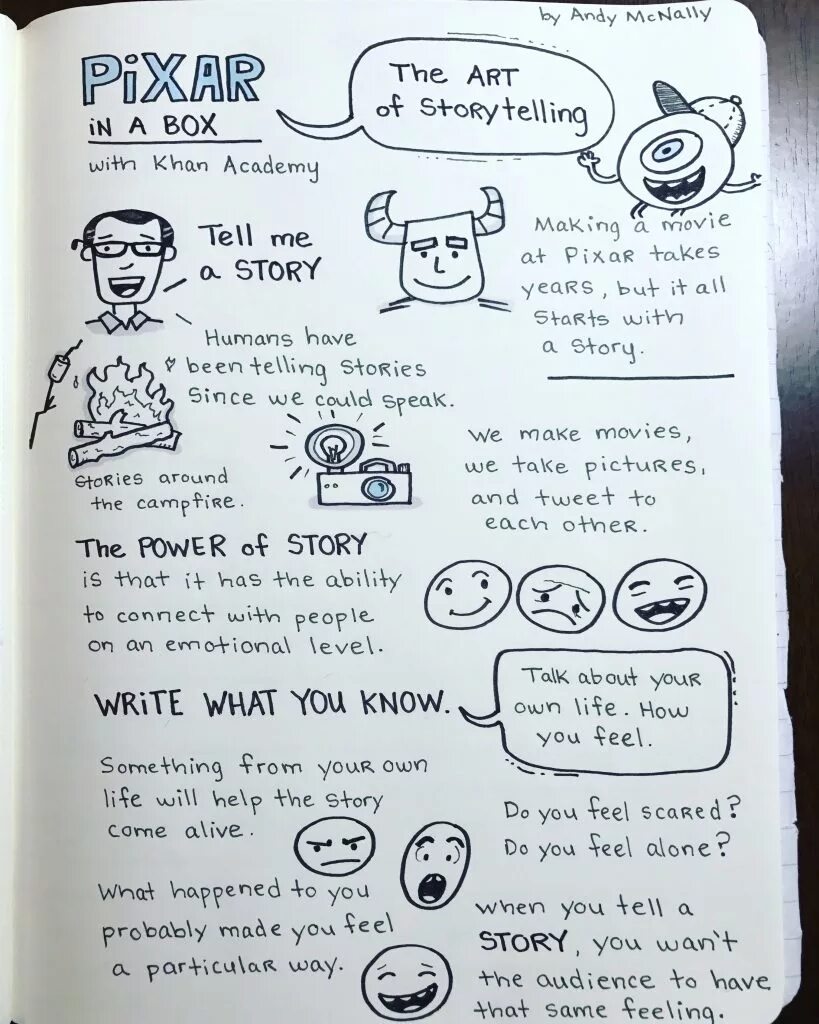 by Andy McNally
PiXAR
iN A BOX
with Khan Academy
The ART
of Storytelling
Tell me
a STORY
Making a movie
at Pixar takes
years, but it all
starts with
a story.
Humans have
been telling stories
since we could speak.
Stories around
the campfire.
We make movies,
we take pictures,
and tweet to
each other.
The POWER of STORY
is that it has the ability
to connect with people
on an emotional level.
WRiTE WHAT YOU KNOW.
Talk about your
own life. How
you feel.
Something from your own
life will help the story
come alive.
Do you feel scared?
Do you feel alone?
What happened to you
probably made you feel
a particular way.
when you tell a
STORY, you wan't
the audience to have
that same feeling.